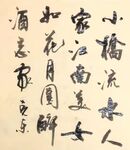 小橋流水人
家江南美女
如花月圓醉
酒忘家